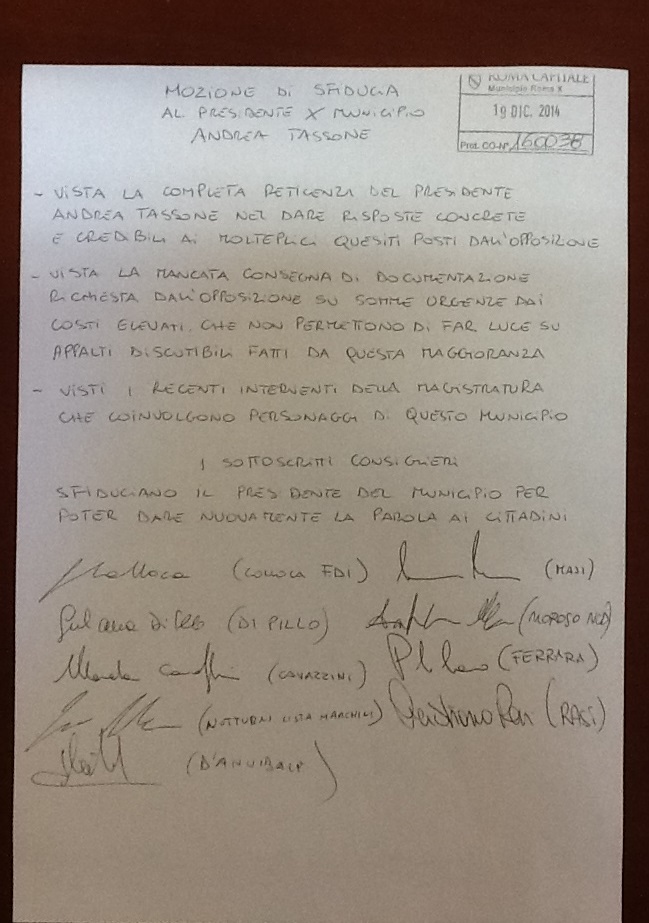 ROMA CAPITALE
Municipio Roma X
19 DIC. 2014
Prot. CO-N° 160038
MOZIONE DI SFIDUCIA
AL PRESIDENTE X MUNICIPIO
ANDREA TASSONE
- VISTA LA COMPLETA RETICENZA DEL PRESIDENTE
ANDREA TASSONE NEL DARE RISPOSTE CONCRETE
E CREDIBILI AI MOLTEPLICI QUESITI POSTI DALL'OPPOSIZIONE
- VISTA LA MANCATA CONSEGNA DI DOCUMENTAZIONE
RICHIESTA DALL'OPPOSIZIONE SU SOMME URGENZE DAI
COSTI ELEVATI, CHE NON PERMETTONO DI FAR LUCE SU
APPALTI DISCUTIBILI FATTI DA QUESTA MAGGIORANZA
- VISTI I RECENTI INTERVENTI DELLA MAGISTRATURA
CHE COINVOLGONO PERSONAGGI DI QUESTO MUNICIPIO
I SOTTOSCRITTI CONSIGLIERI
SFIDUCIANO IL PRESIDENTE DEL MUNICIPIO PER
POTER DARE NUOVAMENTE LA PAROLA AI CITTADINI
(COLLOCA FDI) (MASI)
(DI PILLO) (MOROSO NCD)
(CAVAZZINI) (FERRARA)
(NOTTURNI LISTA MARCHINI) (RASI)
(D'ANNIBALE)